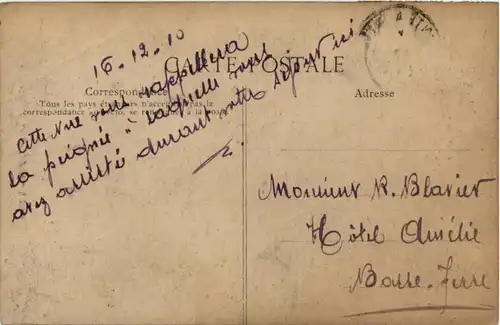 16.12.10
CARTE POSTALE
Correspondance
Tous les pays étrangers n'acceptent pas la
correspondance au recto, se renseigner à la poste
Adresse
Cette vue vous rappellera
la poignée à laquelle vous
avez assisté durant votre séjour ici
Monsieur R. Blavier
Hôtel Amélie
Basse-Terre